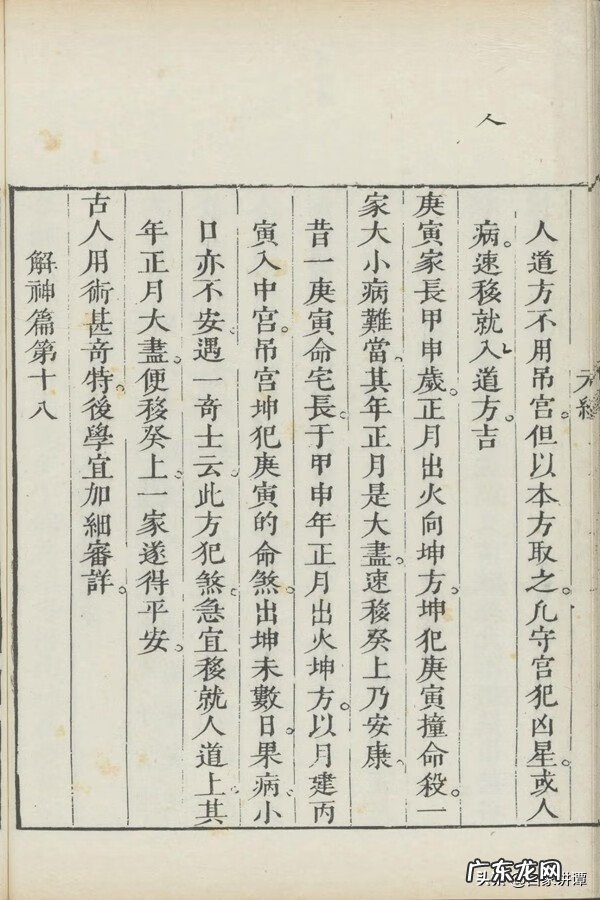 人
元經
人道方不用吊宮。但以本方取之。凢守宮犯凶星。或人
病。速移就入道方。吉
庚寅家長甲申歲。正月出火向坤方。坤犯庚寅撞命殺。一
家大小病難當。其年正月是大盡。速移癸上乃安康。
昔一庚寅命宅長。于甲申年正月出火坤方。以月建丙
寅入中宮。吊宮坤犯庚寅的命煞。出坤未數日。果病。小
口亦不安。遇一奇士云。此方犯煞。急宜移就人道上。其
年正月大盡。便移癸上。一家遂得平安。
古人用術甚奇特。後學宜加細審詳。
解神篇第十八
广东龙网